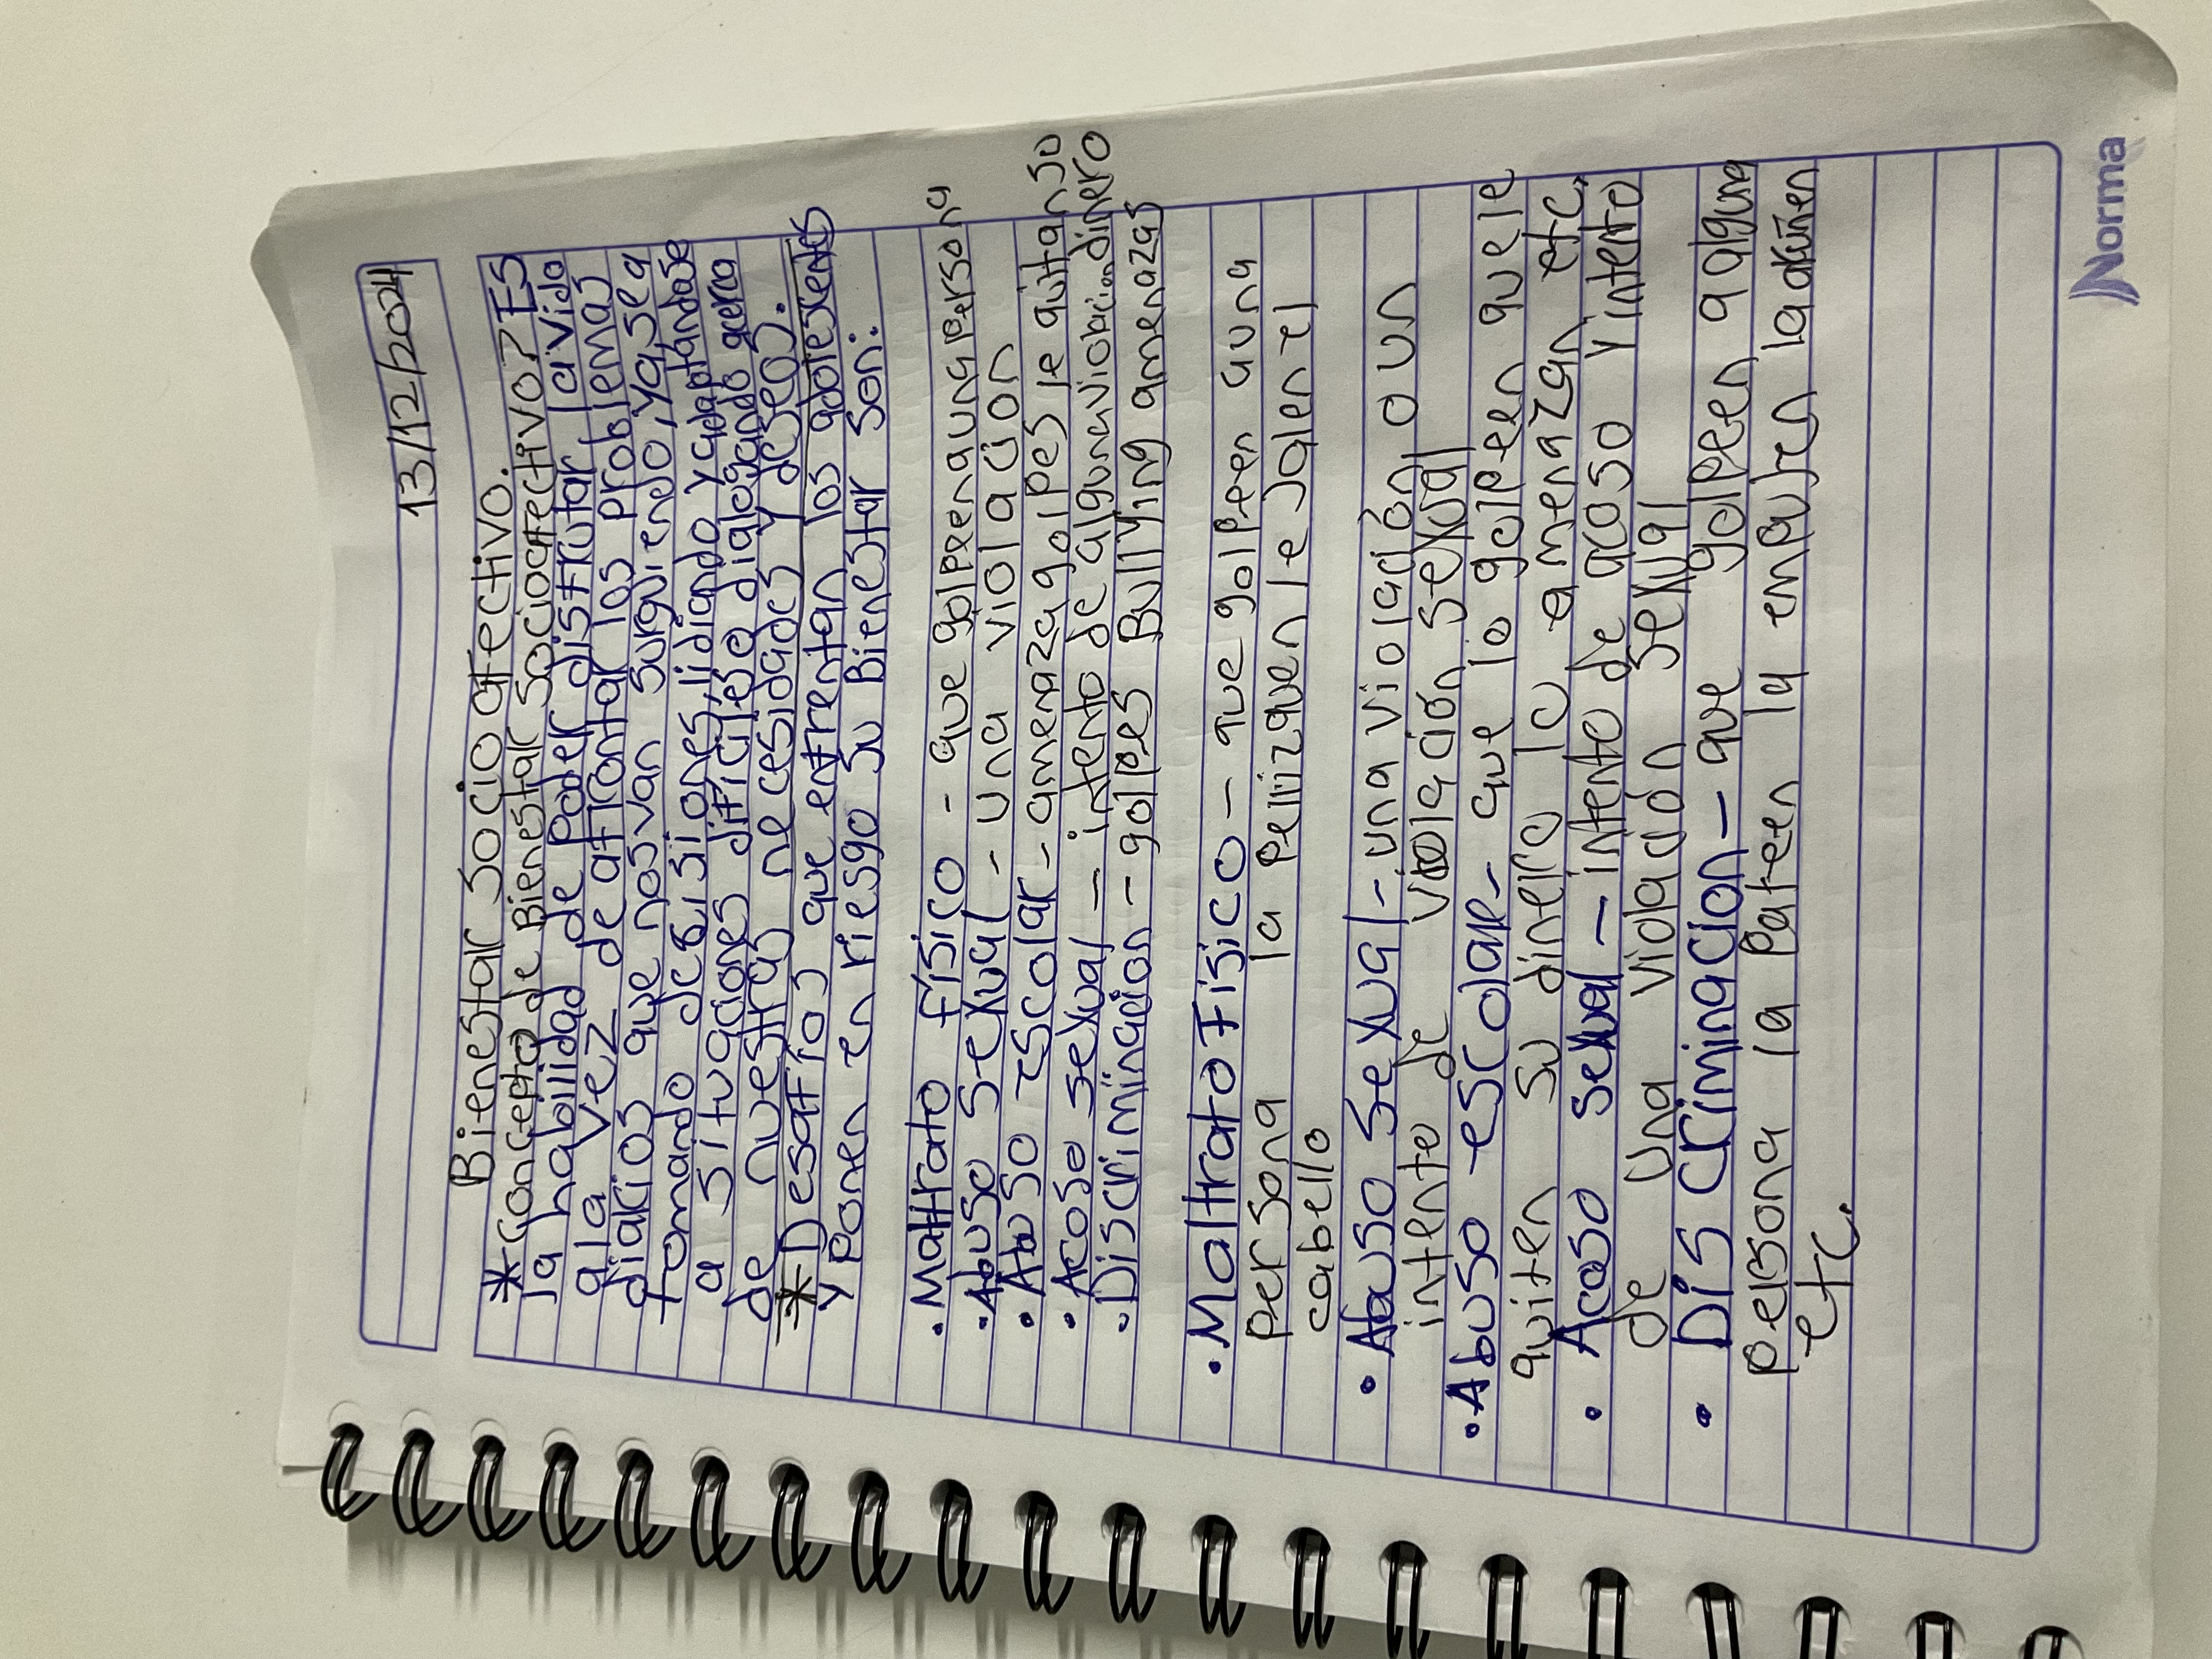 13/12/2024
Bienestar Socioafectivo.
*Concepto de Bienestar Socioafectivo? Es
la habilidad de Poder disfrutar la vida
a la vez de afrontar los problemas
diarios que nos van surguiendo, ya sea
tomando decisiones, lidiando y adaptándose
a situaciones dificiles dialogando acerca
de nuestras necesidades y deseos.
*Desafíos que enfrentan los adolescentes
y Ponen en riesgo su Bienestar son:
• Maltrato físico - que golpeen a una persona
• Abuso sexual - una violación
• Abuso escolar - amenaza golpes le quitan su
dinero
• Acoso sexual - intento de alguna violacion
• Discriminacion - golpes Bullying amenazas
• Maltrato Fisico - que golpeen a una
persona la pellizquen le jalen el
cabello
• Abuso sexual - una violación o un
intento de violación sexual
• Abuso escolar - que lo golpeen que le
quiten su dinero lo amenazan etc.
• Acoso sexual - intento de acoso y intento
de una violación sexual
• Discriminacion - que golpeen a alguna
persona la pateen la empujen la dañen
etc.
Norma